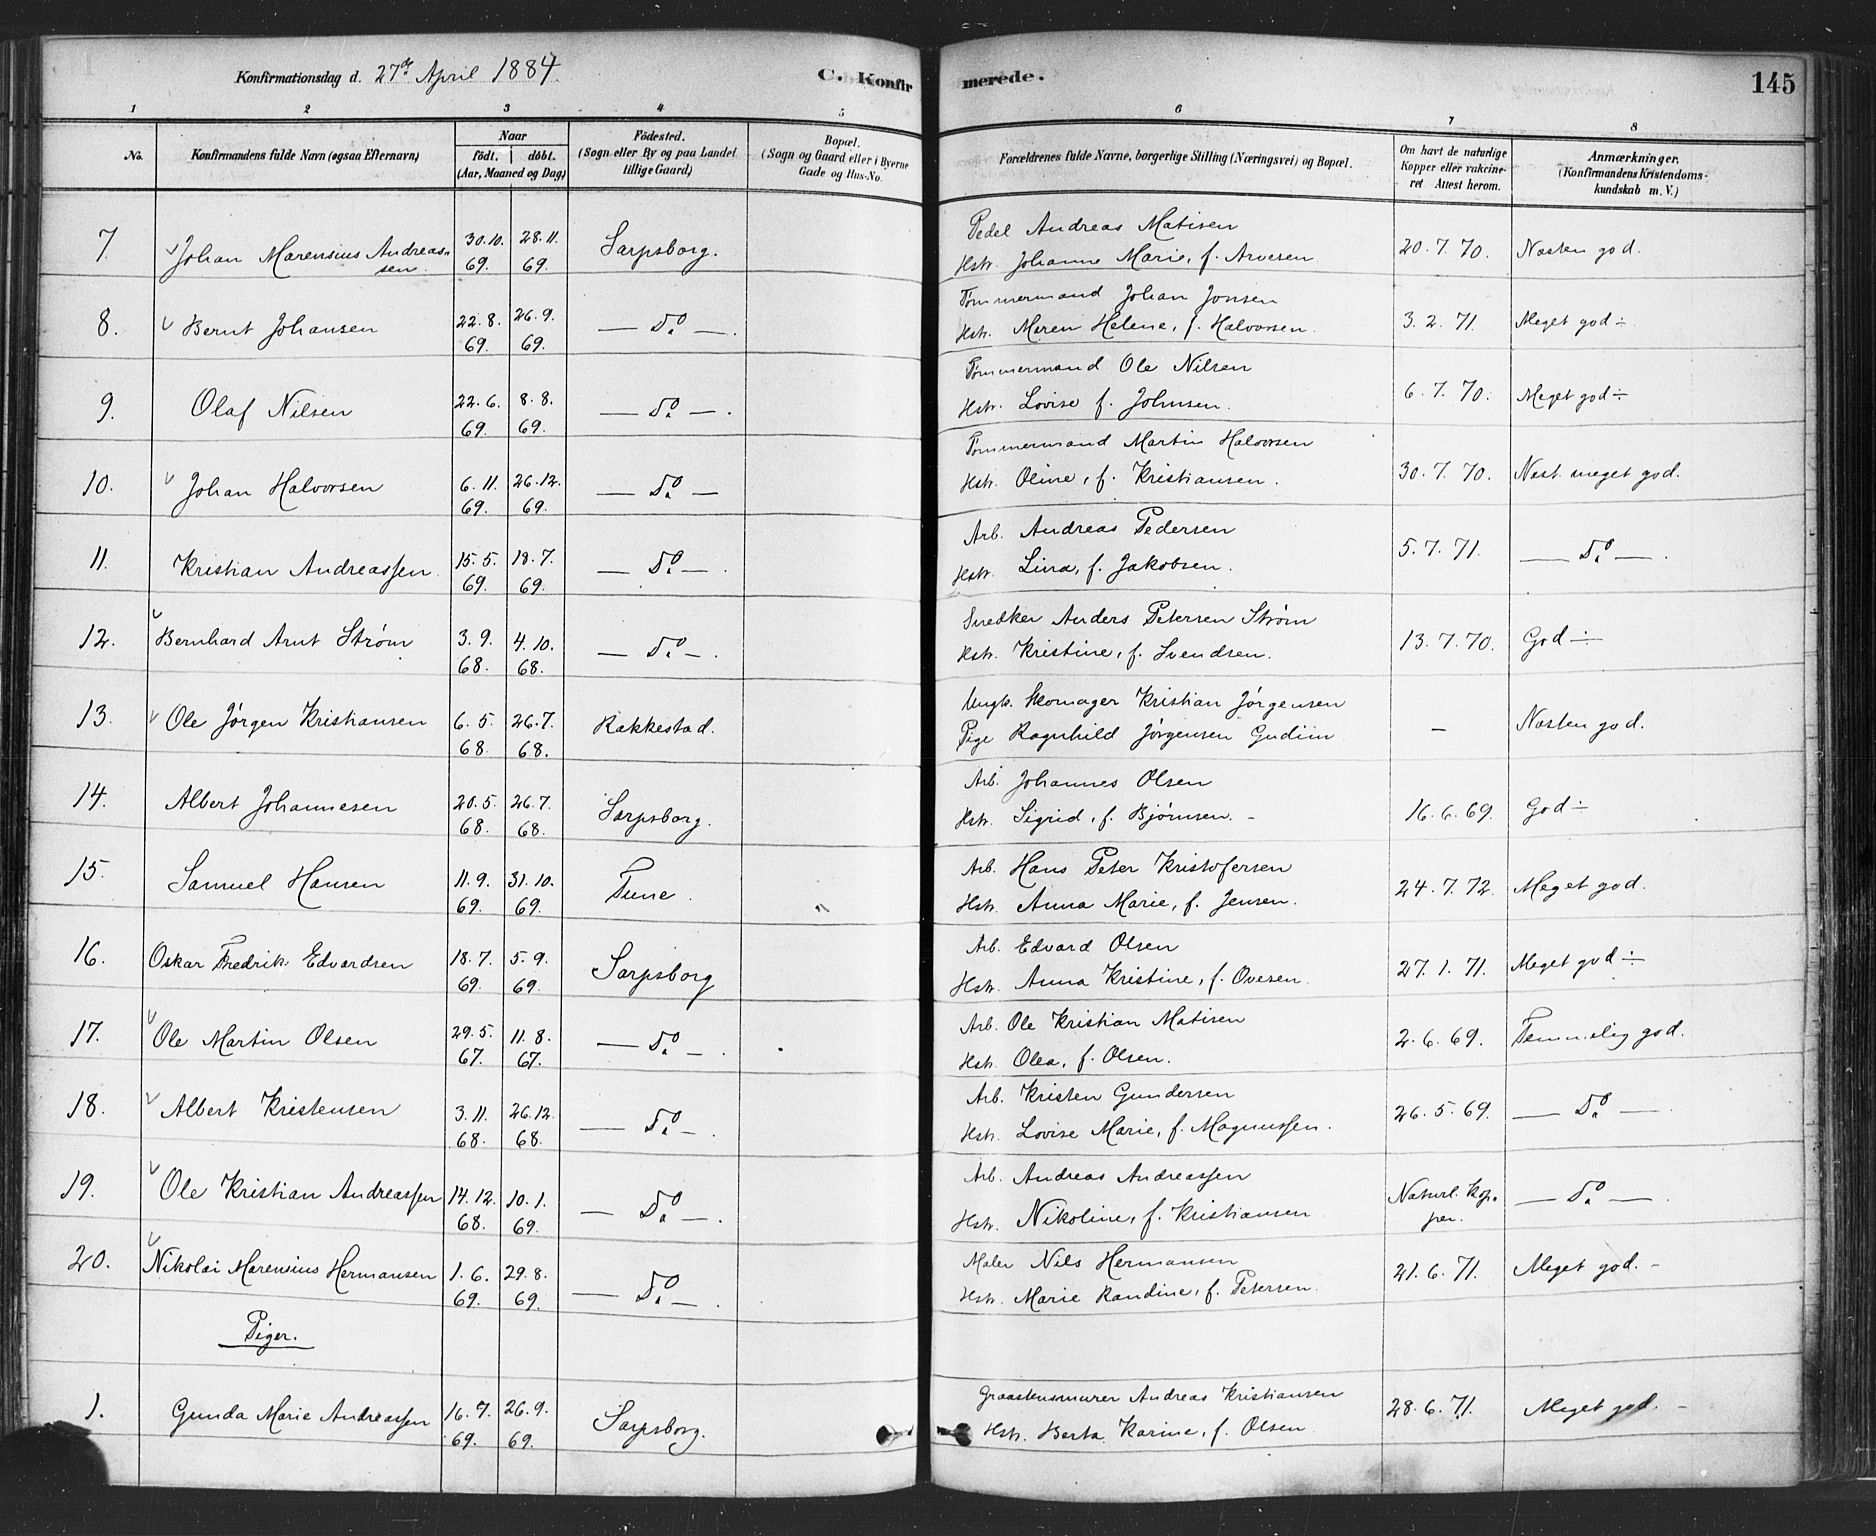 Konfirmationsdag d. 27de April 1884.
C. Konfirmerede.
145
1 2 3 4 5 6 7 8
No.
Konfirmandens fulde Navn (ogsaa Efternavn)
Naar
födt. döbt.
(Aar, Maaned og Dag)
Födested.
(Sogn eller By og paa Landet
tillige Gaard)
Bopæl.
(Sogn og Gaard eller i Byerne
Gade og Hus-No.
Forældrenes fulde Navne, borgerlige Stilling (Næringsvei) og Bopæl.
Om havt de naturlige
Kopper eller vakcine-
ret Attest herom.
Anmærkninger,
(Konfirmandens Kristendoms-
kundskab m. V.)
7. Johan Marensius Andreas-
sen.
30.10. 69. 28.11. 69. Sarpsborg.
Pedel Andreas Matisen
Hstr. Johanne Marie, f. Arvesen
20.7.70. Næsten god.
8. Bernt Johansen
22.8. 69. 26.9. 69. — Do —.
Tømmermand Johan Jonsen
Hstr. Maren Helene, f. Halvorsen.
3.2.71. Meget god ÷
9. Olaf Nilsen
22.6. 69. 8.8. 69. — Do —.
Tømmermand Ole Nilsen
Hstr. Lovise f. Johnsen.
6.7.70. Meget god ÷
10. Johan Halvorsen
6.11. 69. 26.12. 69. — Do —
Tømmermand Martin Halvorsen
Hstr. Oline, f. Kristiansen.
30.7.70. Næst. meget god.
11. Kristian Andreassen
15.5. 69. 18.7. 69. — Do —.
Arb. Andreas Pedersen
Hstr. Lina, f. Jakobsen.
5.7.71. — Do —.
12. Bernhard Arnt Strøm
3.9. 68. 4.10. 68. — Do —.
Snedker Anders Petersen Strøm
Hstr. Kristine, f. Svendsen.
13.7.70. God ÷
13. Ole Jørgen Kristiansen
6.5. 68. 26.7. 68. Rakkestad.
Ungk. Skomager Kristian Jørgensen
Pige Ragnhild Jørgensen Gudim
— Næsten god.
14. Albert Johannesen
20.5. 68. 26.7. 68. Sarpsborg.
Arb. Johannes Olsen
Hstr. Sigrid, f. Bjørnsen. -
16.6.69. God ÷
15. Samuel Hansen
11.9. 69. 31.10. 69. Tune.
Arb. Hans Peter Kristofersen
Hstr. Anna Marie, f. Jensen.
24.7.72. Meget god.
16. Oskar Fredrik Edvardsen
18.7. 69. 5.9. 69. Sarpsborg
Arb. Edvard Olsen
Hstr. Anna Kristine, f. Ovesen.
27.1.71. Meget god ÷
17. Ole Martin Olsen
29.5. 67. 11.8. 67. — Do —.
Arb. Ole Kristian Matisen
Hstr. Olea, f. Olsen.
2.6.69. Temmelig god.
18. Albert Kristensen
3.11. 68. 26.12. 68. — Do —.
Arb. Kristen Gundersen
Hstr. Lovise Marie, f. Magnussen.
26.5.69. — Do —.
19. Ole Kristian Andreassen
14.12. 68. 10.1. 69. — Do —.
Arb. Andreas Andreassen
Hstr. Nikoline, f. Kristiansen
Naturl. Kop-
per. — Do —.
20. Nikolai Marensius Hermansen
1.6. 69. 29.8. 69. — Do —.
Maler Nils Hermansen
Hstr. Marie Randine, f. Petersen.
21.6.71. Meget god. -
Piger.
1. Gunda Marie Andreassen
16.7. 69. 26.9. 69. Sarpsborg.
Graastensmurer Andreas Kristiansen
Hstr. Berta Karine, f. Olsen
28.6.71. Meget god. -